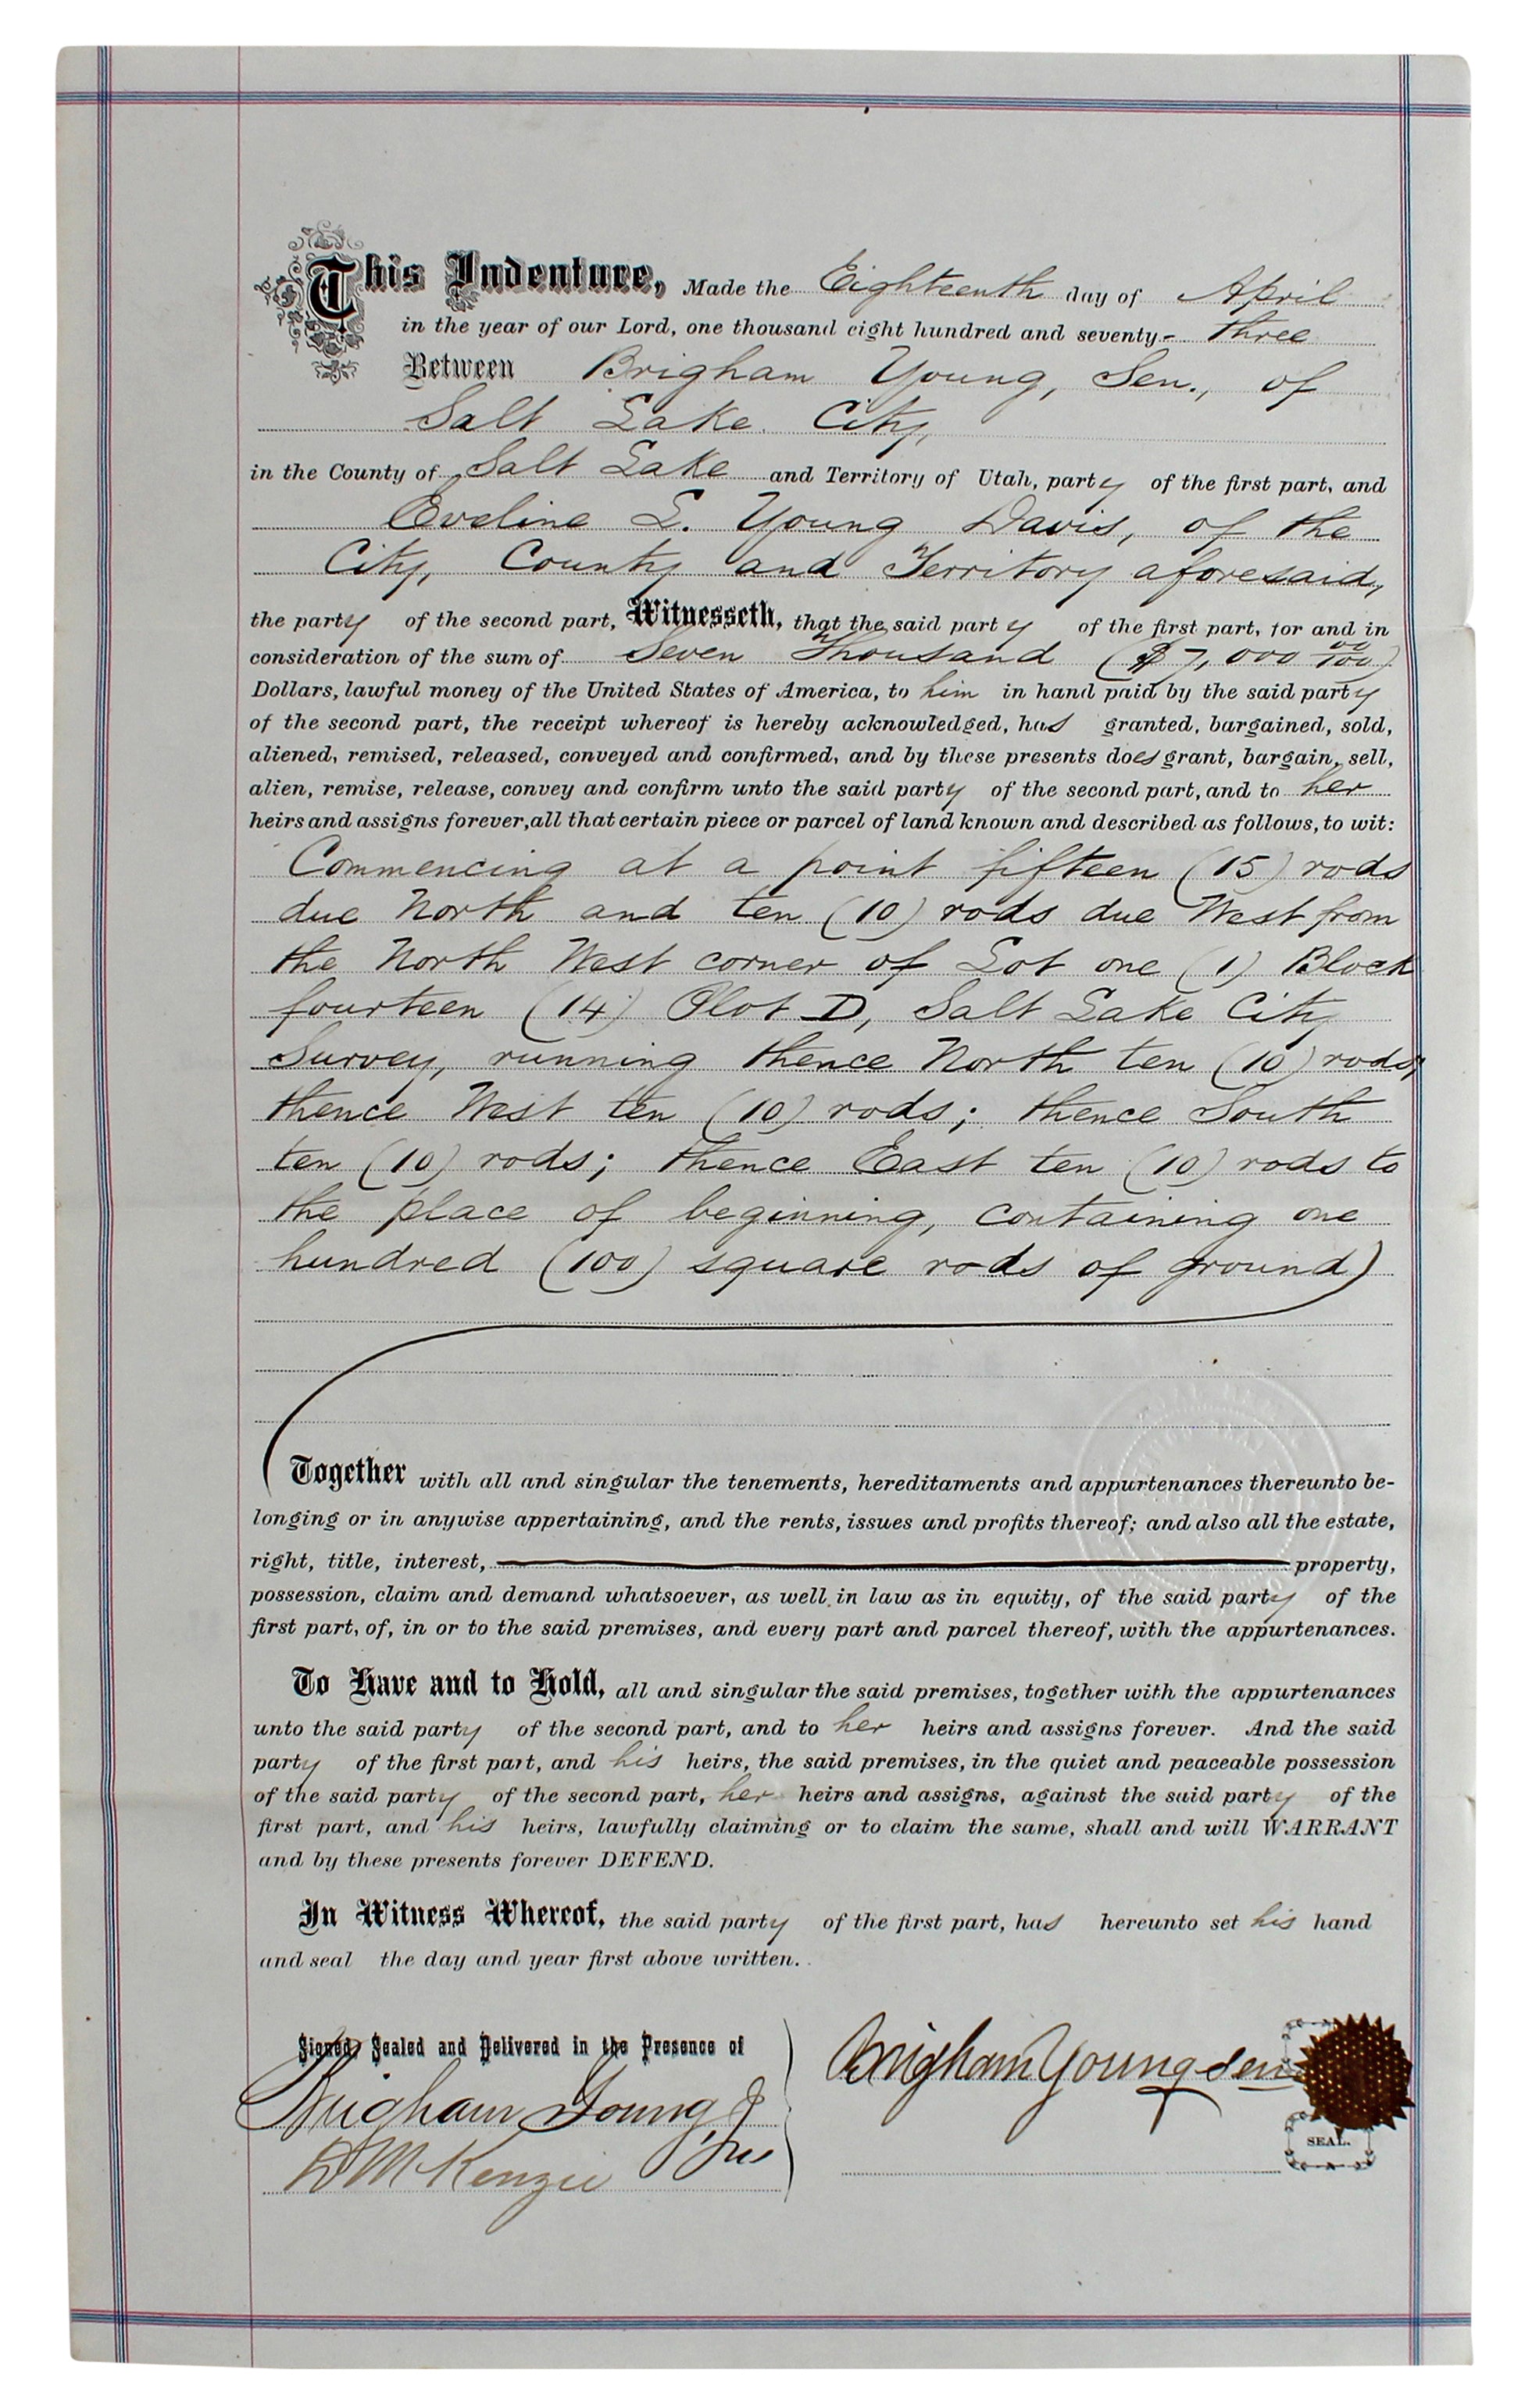 This Indenture, Made the Eighteenth day of April
in the year of our Lord, one thousand eight hundred and seventy- three
Between Brigham Young, Sen., of
Salt Lake City,
in the County of Salt Lake and Territory of Utah, party of the first part, and
Eveline L. Young Davis, of the
City, County and Territory aforesaid,
the party of the second part, Witnesseth, that the said party of the first part, for and in
consideration of the sum of Seven Thousand ($7,000 00/100)
Dollars, lawful money of the United States of America, to him in hand paid by the said party
of the second part, the receipt whereof is hereby acknowledged, has granted, bargained, sold,
aliened, remised, released, conveyed and confirmed, and by these presents does grant, bargain, sell,
alien, remise, release, convey and confirm unto the said party of the second part, and to her
heirs and assigns forever, all that certain piece or parcel of land known and described as follows, to wit:
Commencing at a point fifteen (15) rods
due North and ten (10) rods due West from
the North West corner of Lot one (1) Block
fourteen (14) Plot D, Salt Lake City
Survey, running thence North ten (10) rods;
thence West ten (10) rods; thence South
ten (10) rods; thence East ten (10) rods to
the place of beginning, containing one
hundred (100) square rods of ground)
Together with all and singular the tenements, hereditaments and appurtenances thereunto be-
longing or in anywise appertaining, and the rents, issues and profits thereof; and also all the estate,
right, title, interest, property,
possession, claim and demand whatsoever, as well in law as in equity, of the said party of the
first part, of, in or to the said premises, and every part and parcel thereof, with the appurtenances.
To Have and to Hold, all and singular the said premises, together with the appurtenances
unto the said party of the second part, and to her heirs and assigns forever. And the said
party of the first part, and his heirs, the said premises, in the quiet and peaceable possession
of the said party of the second part, her heirs and assigns, against the said party of the
first part, and his heirs, lawfully claiming or to claim the same, shall and will WARRANT
and by these presents forever DEFEND.
In Witness Whereof, the said party of the first part, has hereunto set his hand
and seal the day and year first above written.
Signed, Sealed and Delivered in the Presence of
Brigham Young Sen
Brigham Young, Jr
Jun
D McKenzie
SEAL.